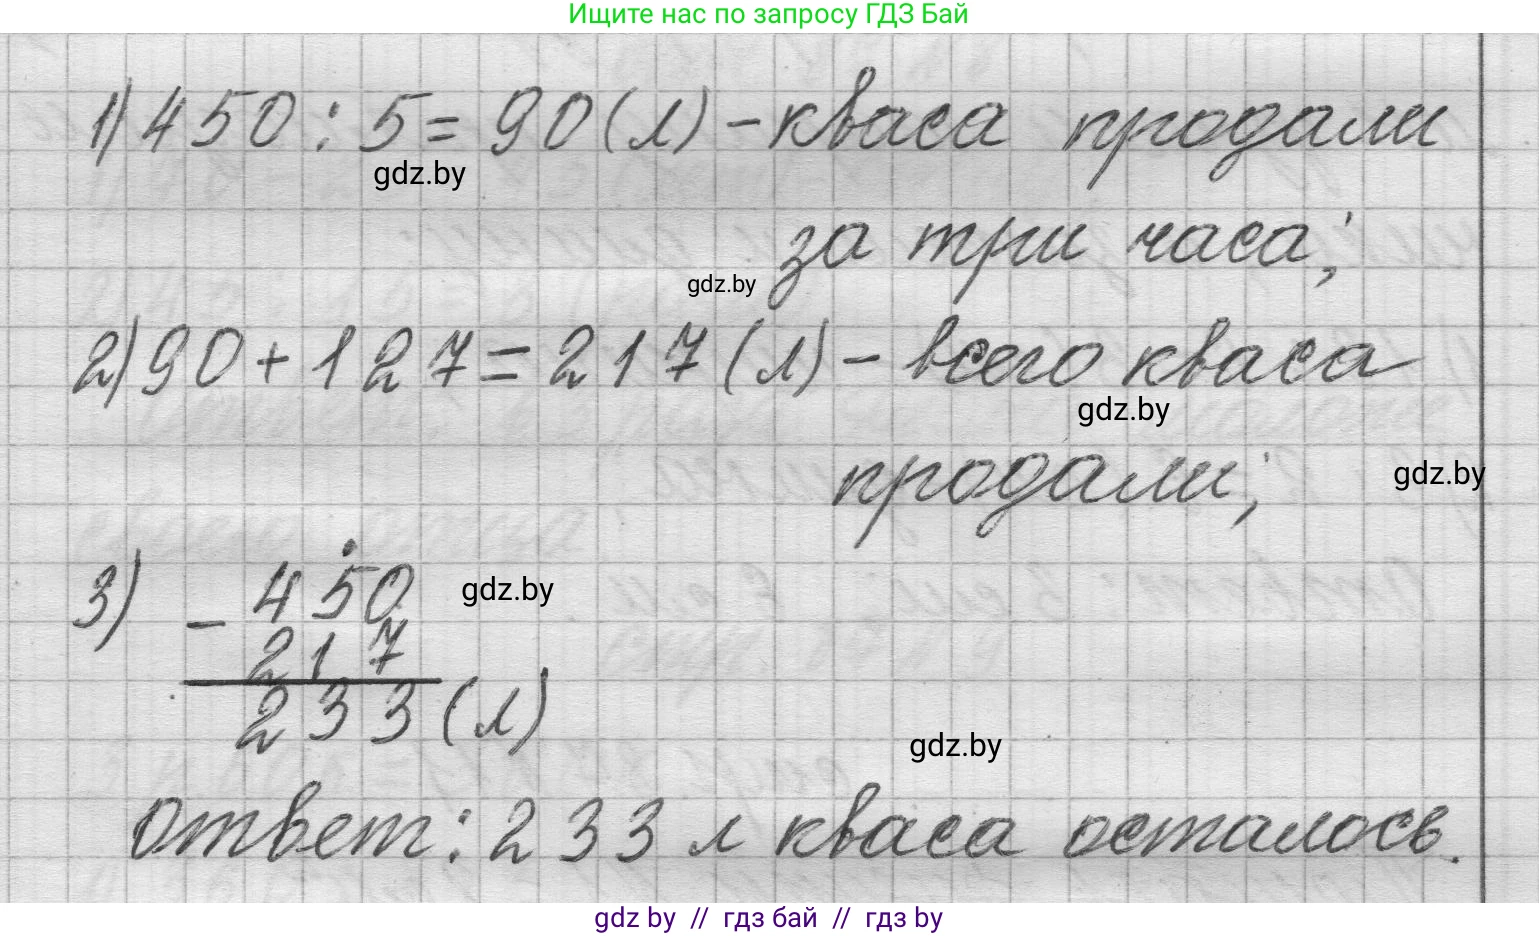 Ищите нас по запросу ГДЗ Бай
1) 450 : 5 = 90 (л) - кваса продали
gdz.by
за три часа;
gdz.by
2) 90 + 127 = 217 (л) - всего кваса
gdz.by
продали;
gdz.by
3) - 450
gdz.by
217
233 (л)
gdz.by
ответ: 233 л кваса осталось.
gdz by // гдз бай // гдз by